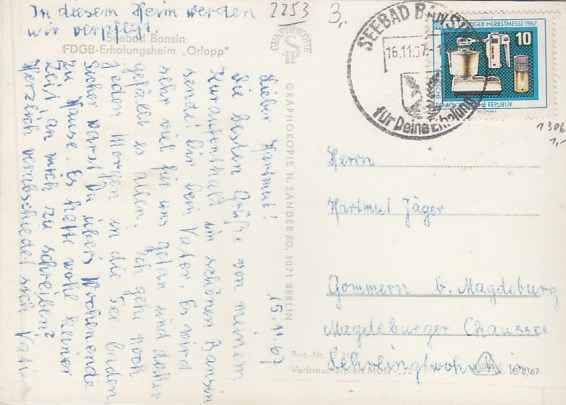 In diesem Heim werden
wir verpflegt.
Seebad Bansin
FDGB-Erholungsheim „Orlopp"
2253
3,-
GRAPHOKOPIE
GRAPHOKOPIE H. SANDER KG, 1071 BERLIN
SEEBAD BANSIN
16.11.67
für Deine Erholung
HERBSTMESSE 1967
10
REPUBLIK
1306
1,-
15.11.67
Lieber Hartmut!
Die besten Grüße von meinem
Kuraufenthalt im schönen Bansin
sendet Dir Dein Vater. Es wird
sehr viel für uns getan und daher
gefällt es allen. Ich gehe noch
jeden Morgen in die See baden.
Sicher warst Du übers Wochenende
zu Hause. Es hatte wohl keiner
Zeit an mich zu schreiben?
Herzlich verabschiedet sich Vati
Herrn
Hartmut Jäger
Gommern b. Magdeburg
Magdeburger Chaussee
Lehrlingswohnheim
Best.-Nr.
Verbraucherpreis MDN